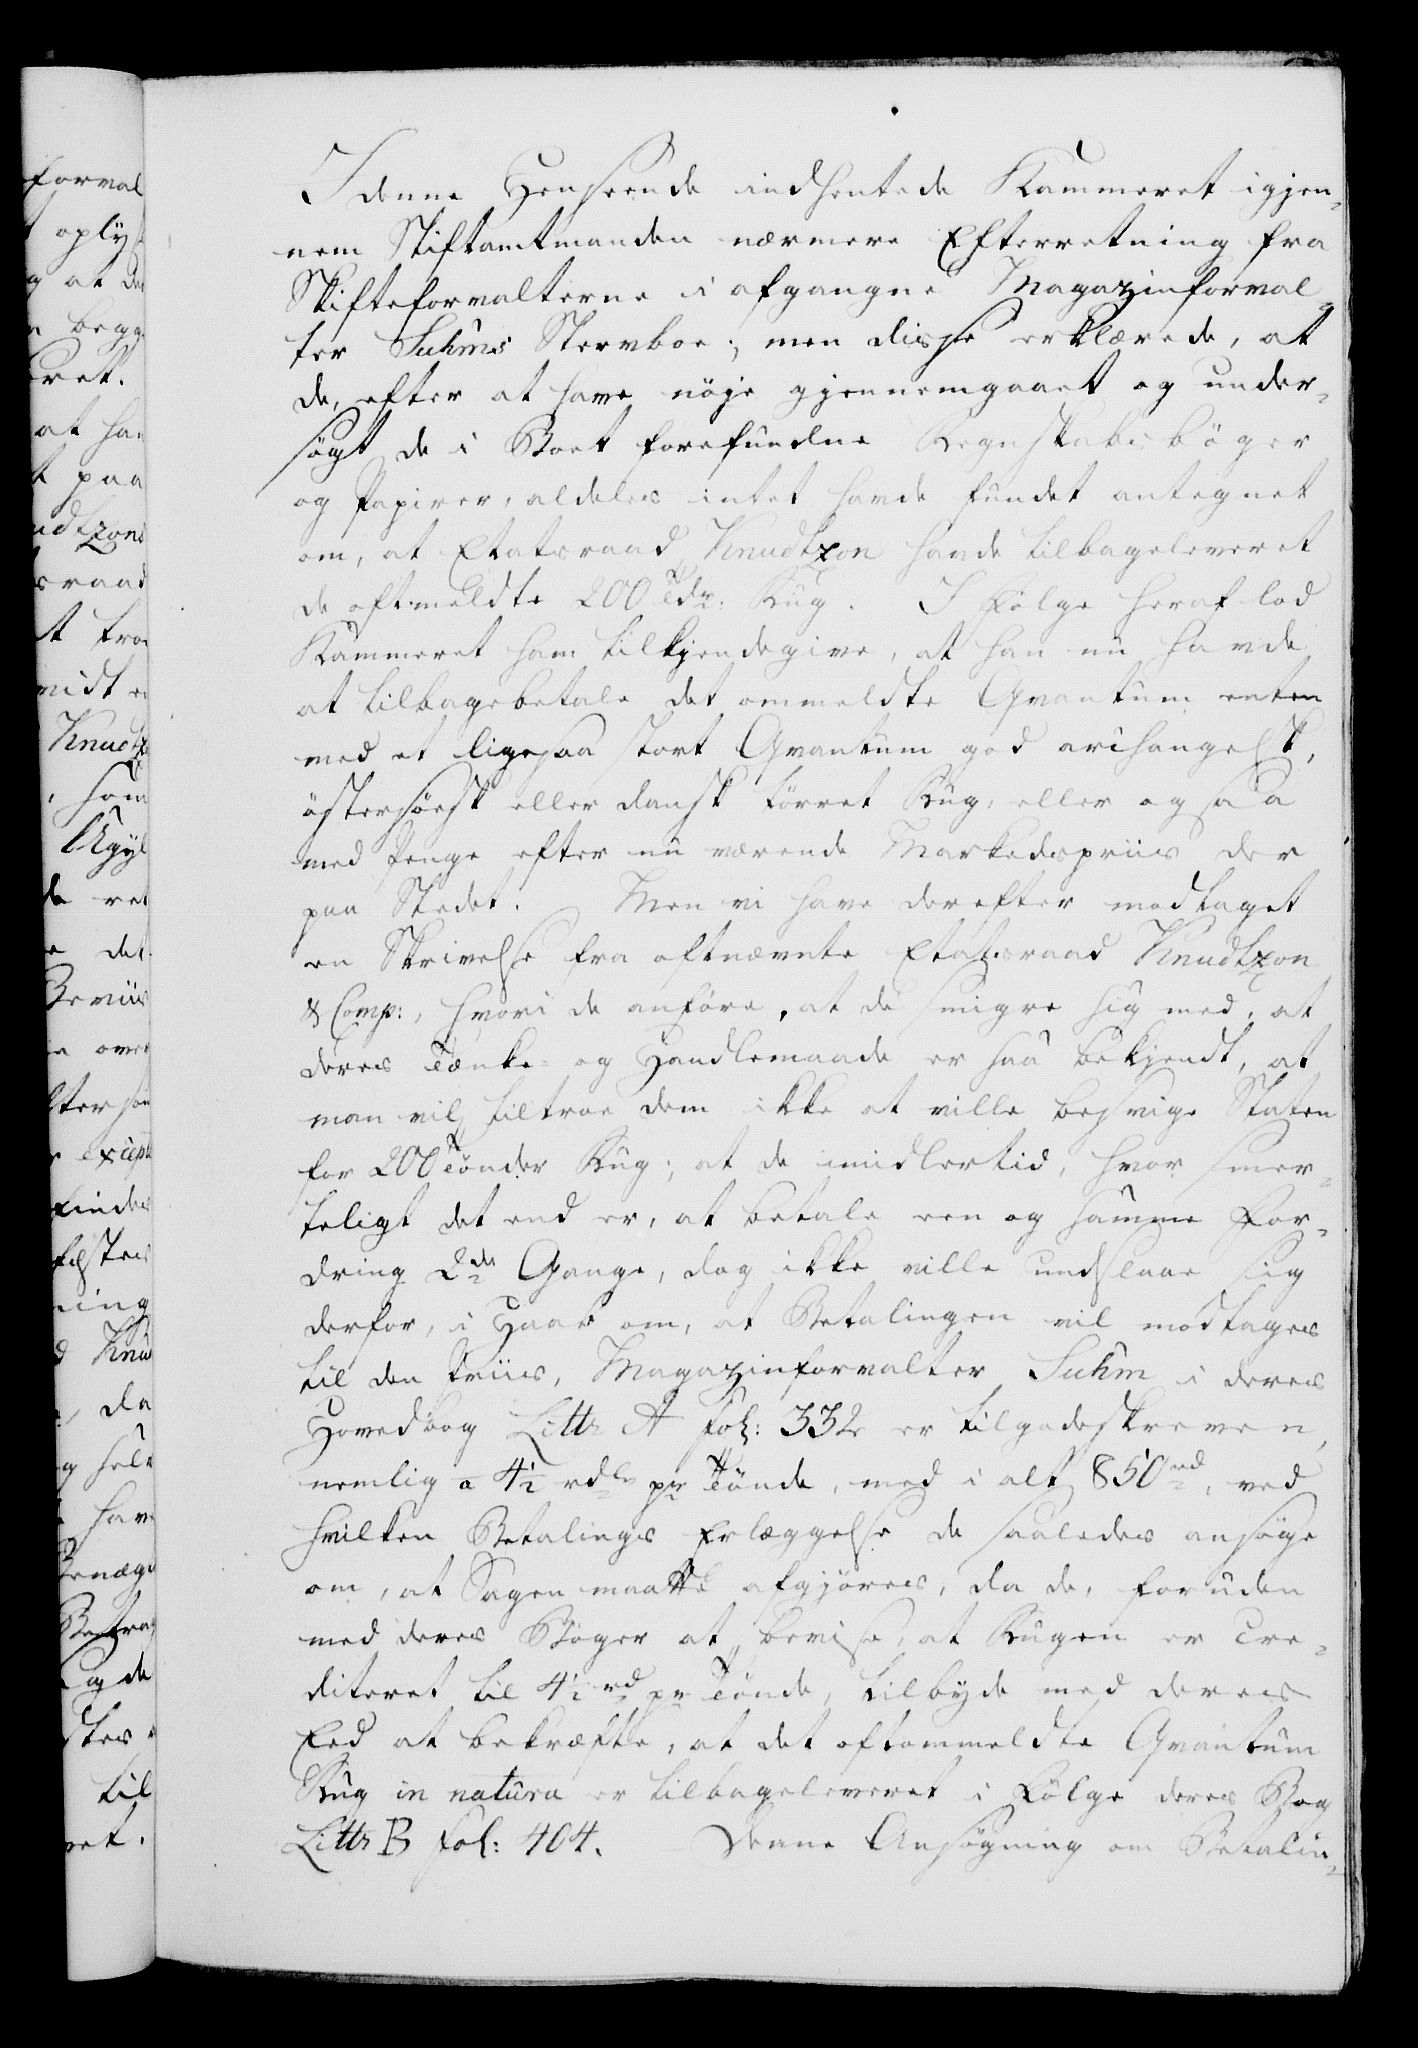 I denne Henseende indhentede Kammeret igjen-
nem Stiftamtmanden nærmere Efterretning fra
Skifteforvalterne i afgangne Magazinforval-
ter Suhms Sterboe; men disse erklærede, at
de, efter at have nöje gjennemgaaet og under-
sögt de i Boet forefundne Regnskabsböger
og Papirer, aldeles intet havde fundet antegnet
om, at Etatsraad Knudtzon havde tilbageleveret
de oftmeldte 200 Tdr: Rug. I Fölge heraf lod
Kammeret ham tilkjendegive, at han nu havde
at tilbagebetale det ommeldte Qvantum enten
med et ligesaa stort Qvantum god archangelsk,
östersöesk eller dansk törret Rug, eller ogsaa
med Penge efter nu værende Markedspriis der
paa Stedet. Men vi have derefter modtaget
en Skrivelse fra oftnævnte Etatsraad Knudtzon
& Comp:, hvori de anföre, at de smigre sig med, at
deres Tænke- og Handlemaade er saa bekjendt, at
man vil tiltroe dem ikke at ville besvige Staten
for 200 Tönder Rug; at de imidlertid, hvor smer-
teligt det end er, at betale een og samme For-
dring 2de Gange, dog ikke ville undslaae sig
derfor, i Haab om, at Betalingen vil modtages
til den Priis, Magazinforvalter Suhm i deres
Hovedbog Littr A fol: 332 er tilgodeskreven,
nemlig a 4½ rdlr pr Tönde, med i alt 850 rd, ved
hvilken Betalings Erlæggelse de saaledes ansöge
om, at Sagen maatte afgjöres, da de, foruden
med deres Böger at bevise, at Rugen er cre-
diteret til 4½ rd pr Tönde, tilbyde med deres
Eed at bekræfte, at det oftommeldte Qvantum
Rug in natura er tilbageleveret i Fölge deres Bog
Littr B fol: 404. Denne Ansögning om Betalin-